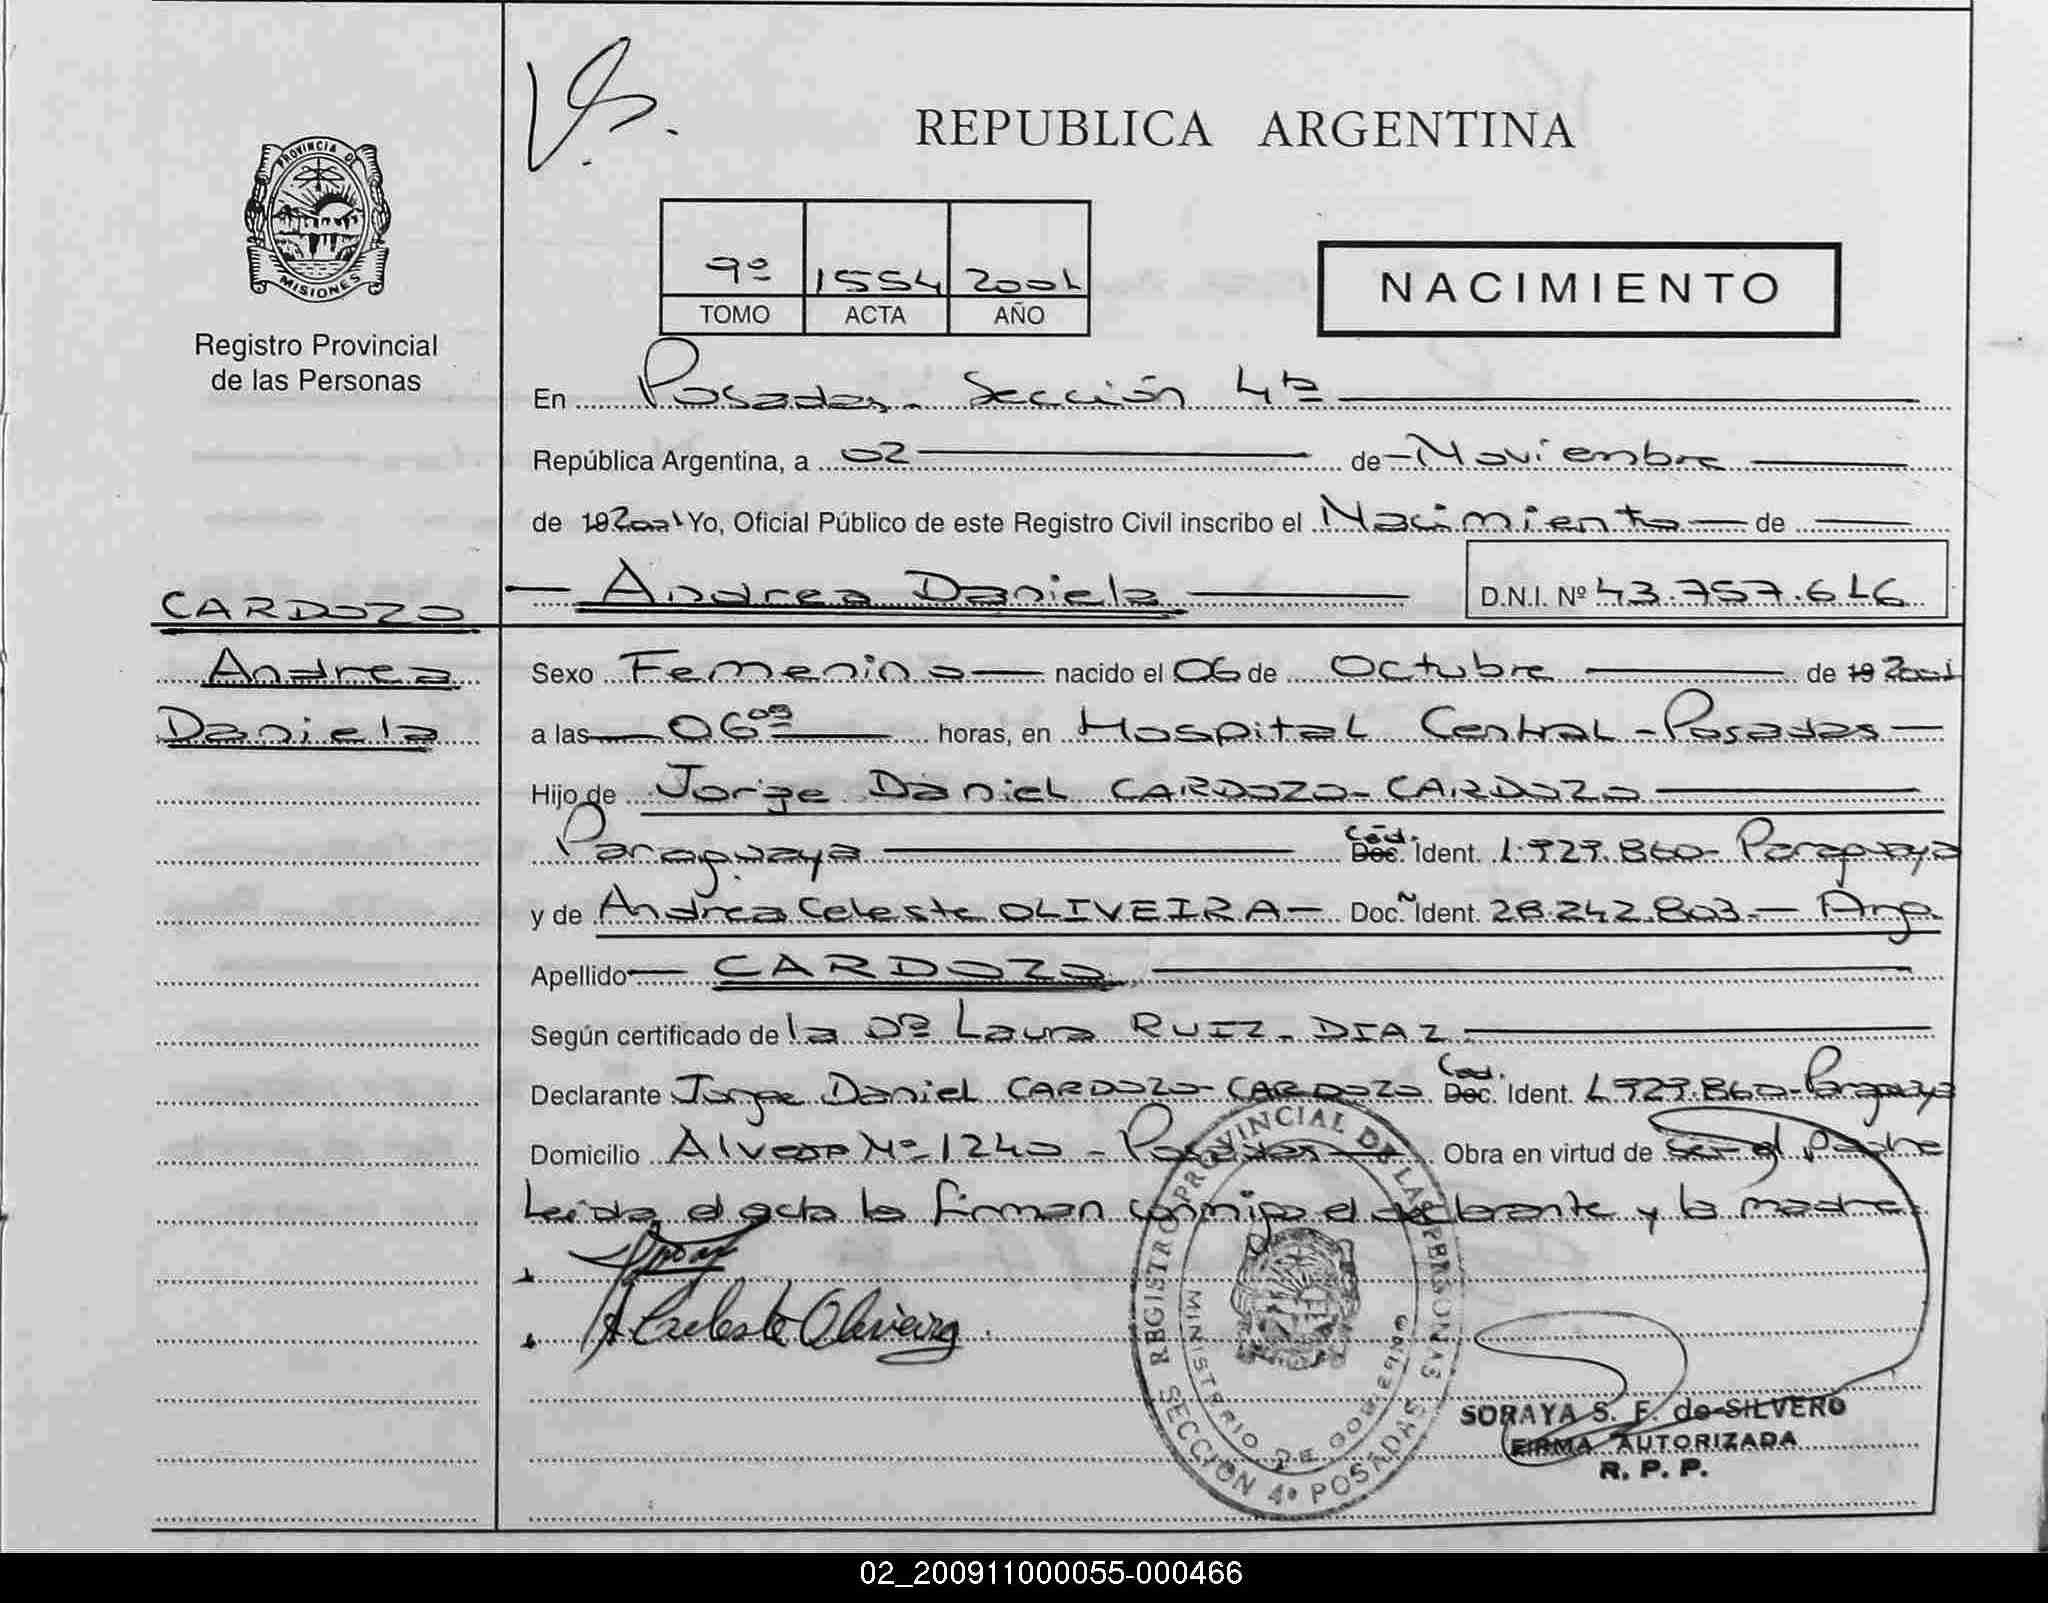 PROVINCIA DE
MISIONES
Registro Provincial
de las Personas
CARDOZO
Andrea
Daniela
REPUBLICA ARGENTINA
9º 1554 2001
TOMO ACTA AÑO
NACIMIENTO
En Posadas - Sección 4ta
República Argentina, a 02 de Noviembre
de 19 2001 Yo, Oficial Público de este Registro Civil inscribo el Nacimiento de
Andrea Daniela D.N.I. Nº 43.757.616
Sexo Femenino nacido el 06 de Octubre de 19 2001
a las 06 09 horas, en Hospital Central - Posadas
Hijo de Jorge Daniel CARDOZO - CARDOZO
Paraguaya Céd. Doc. Ident. 1.929.860 - Paraguaya
y de Andrea Celeste OLIVEIRA - Doc. Ident. 28.242.803 - Arg.
Apellido CARDOZO
Según certificado de la Dra Laura RUIZ - DIAZ
Declarante Jorge Daniel CARDOZO - CARDOZO Céd. Doc. Ident. 1.929.860 - Paraguaya
Domicilio Alvear Nº 1240 - Posadas Obra en virtud de ser el padre
Leida el acta la firman conmigo el declarante y la madre
A Celeste Oliveira
REGISTRO PROVINCIAL DE LAS PERSONAS
MINISTERIO DE GOBIERNO
SECCION 4º POSADAS
SORAYA S. F. de SILVERO
FIRMA AUTORIZADA
R. P. P.
02_200911000055-000466